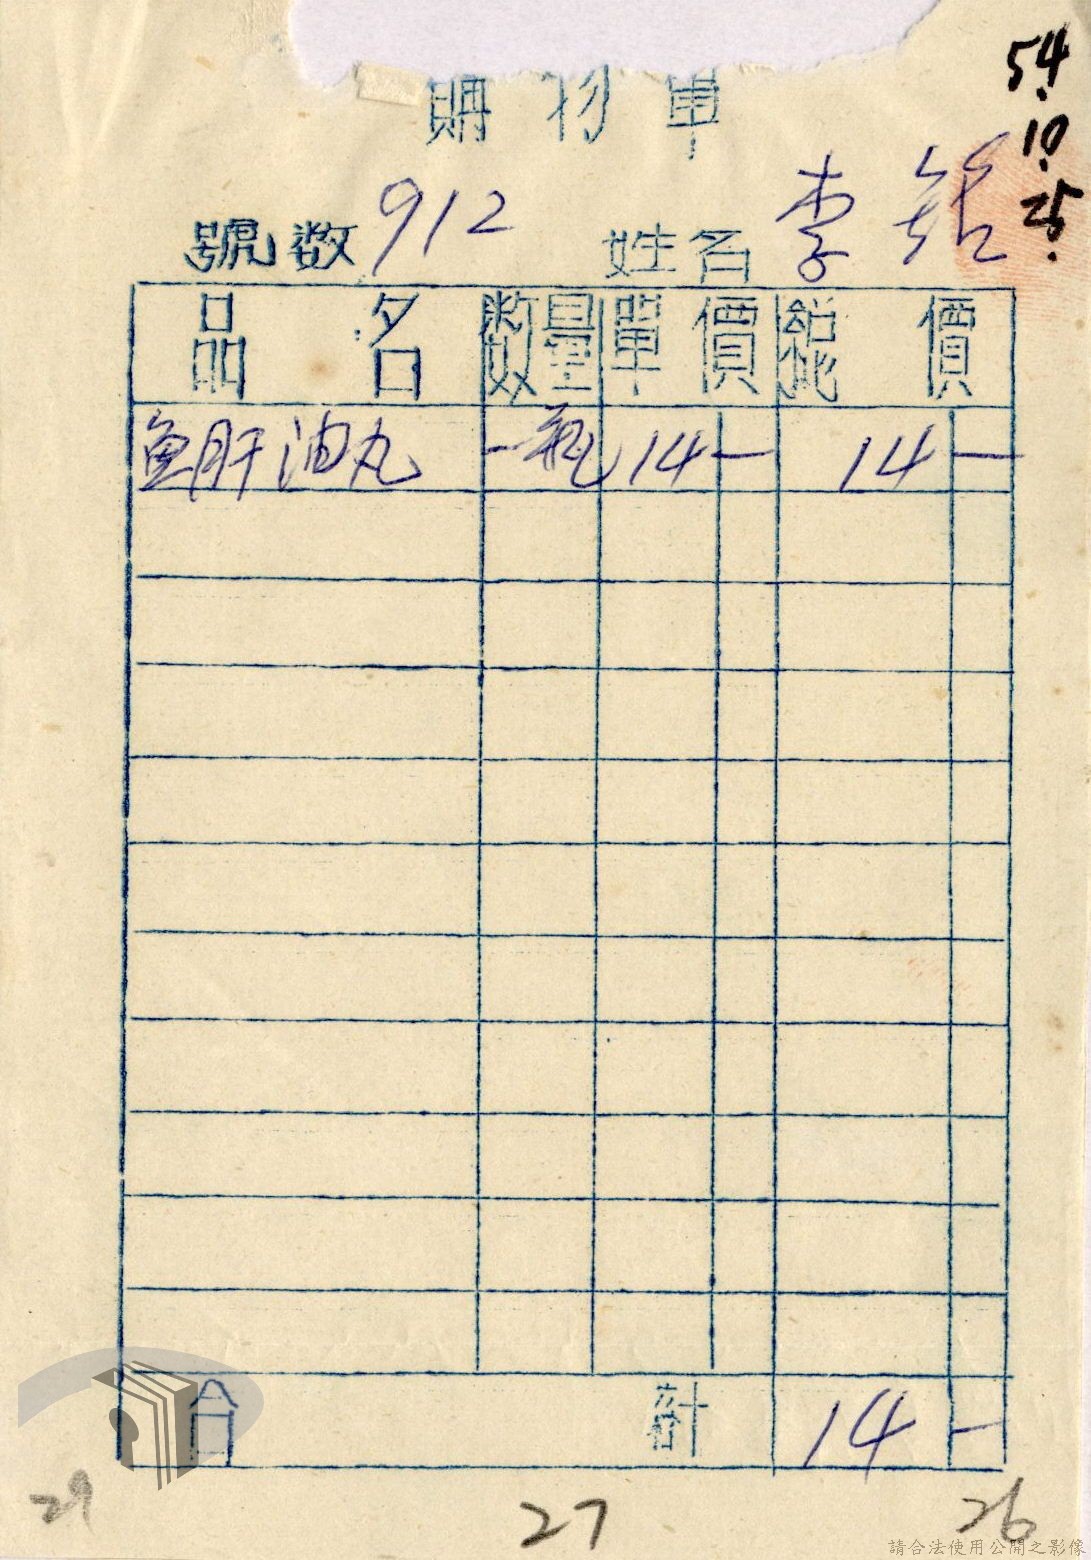 54.
10.
25.
購物單
號数 912 姓名 李
品名 数量 單價 總價
魚肝油丸 一瓶 14 — 14 —
合計 14 —
29 27 26
請合法使用公開之影像